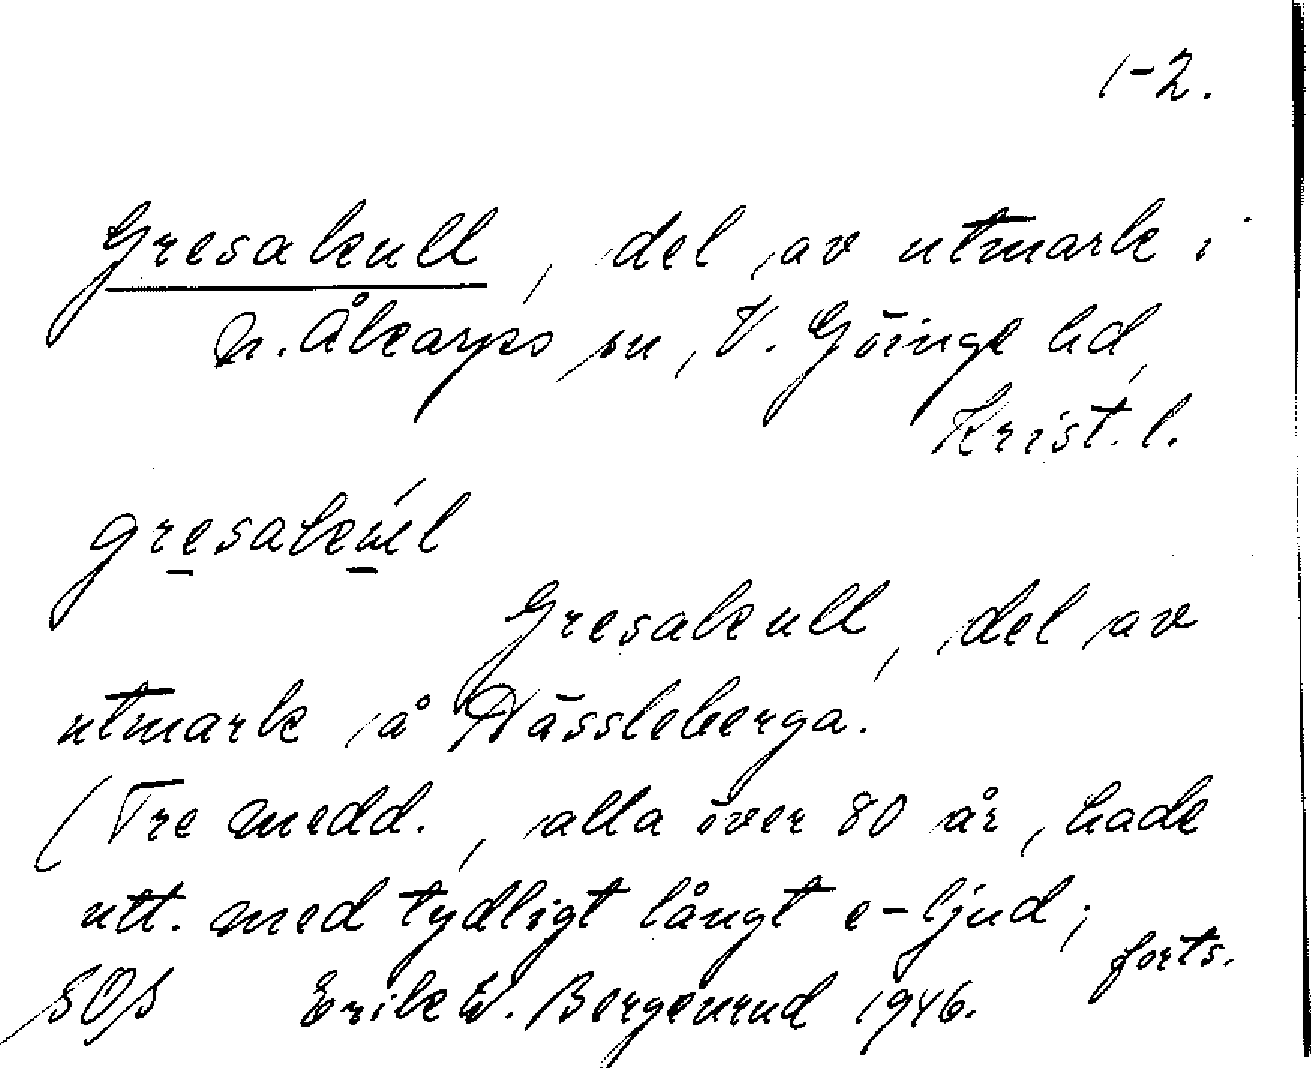 1-2.
Gresakull, del av utmark i
N. Åkarps sn, V. Göinge hd,
Krist. l.
gresakúl
Gresakull, del av
utmark å Hässleberga.
(Tre medd., alla över 80 år, hade
utt. med tydligt långt e-ljud;
forts.
SOS Erik W. Bergenrud 1946.